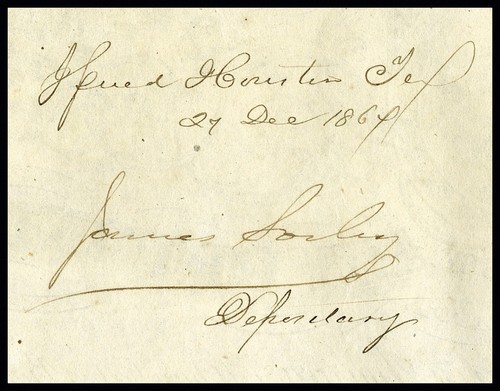 Issued Houston Tex
27 Dec 1864
James Sorley
Depositary